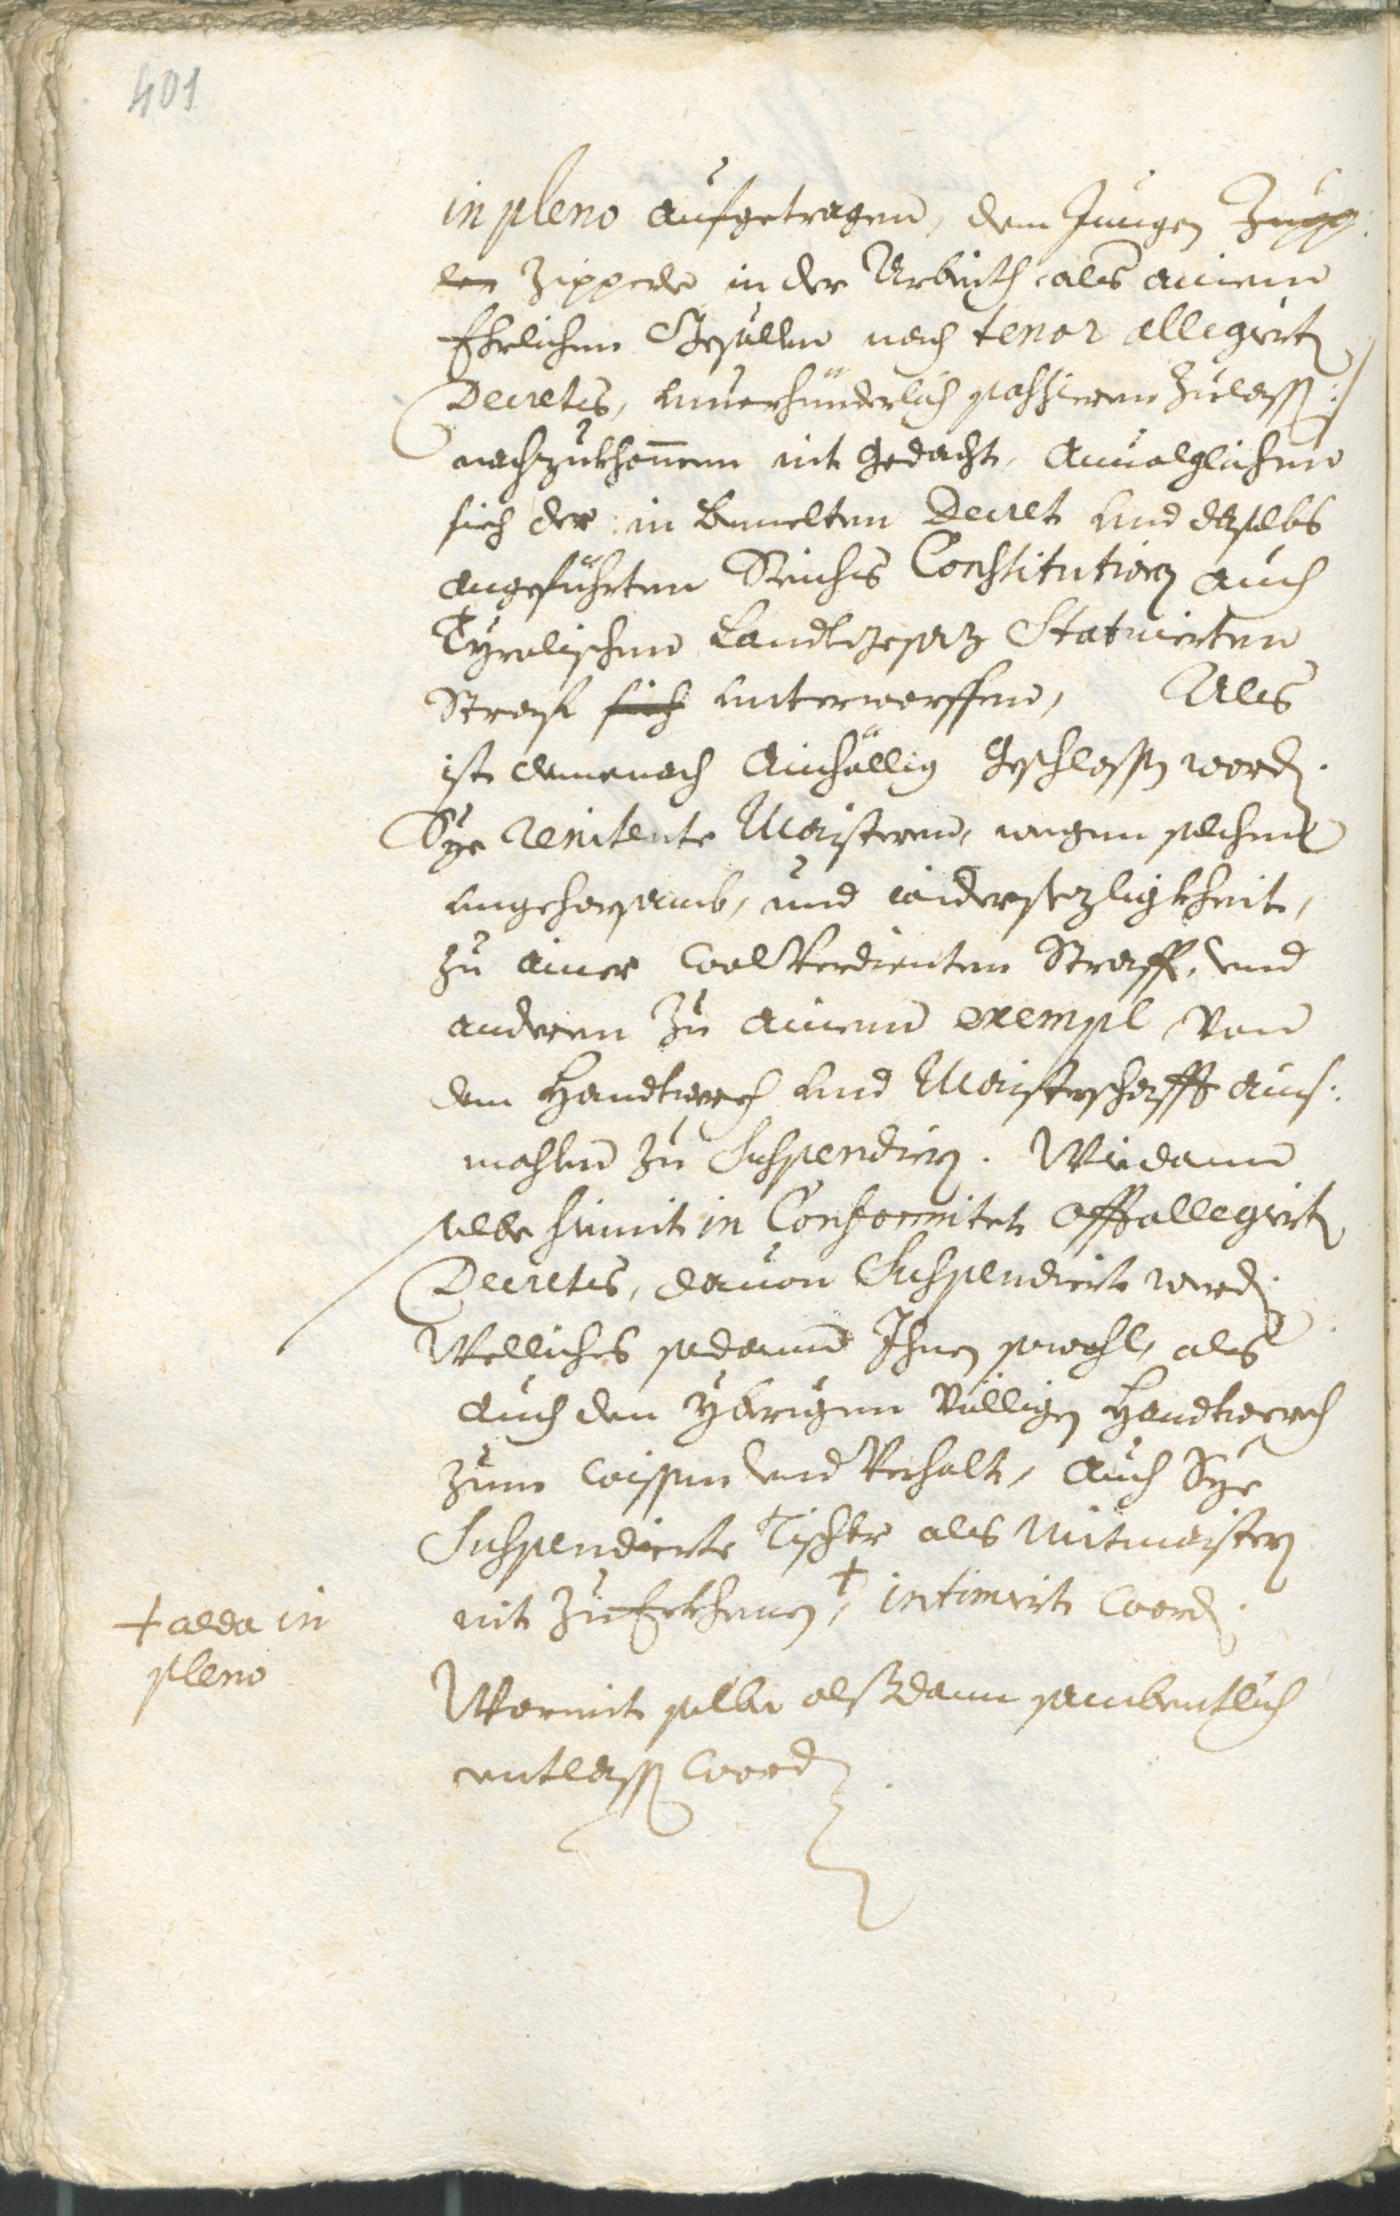 401
in pleno aufgetragen, dem Jungen Zupp:
len Zipperle in der Arbeith als ainem
Ehrlichen Gesöllen nach tenor allegierten
Decretes, unverhinderlich passieren zulassen :/
nachzukhommen nit gedacht, anvolglichen
sich der in bemelten Decret und daselbs
angeführten Reichs Constitution auch
Tyrolischen Landtsgesaz Statuierten
Straff sich unterworffen, Als
ist demenach Ainhöllig geschlossen worden.
Sye renitente Maisteren, wegen solchen
ungehorsamb, und widersezligkheit,
zu ainer wolverdienten Straff, und
anderen zu ainem exempl von
dem Handtwerch und Maisterschafft ains:
mahlen zu Suspendiern. Wie dann
selbe hiemit in Conformitet offtallegierten
Decretes, davon Suspendiert werden.
Welliches sodann Ihnen sowohl, als
auch dem ybrigen völligen Handtwerch
zum wissen und verhalt, auch Sye
Suspendierte Tischler als Mitmaistern
nit zu Erkhenen +, intimiert worden.
+ alda in
pleno
Wormit selbe alßdann sambentlich
entlassen worden.